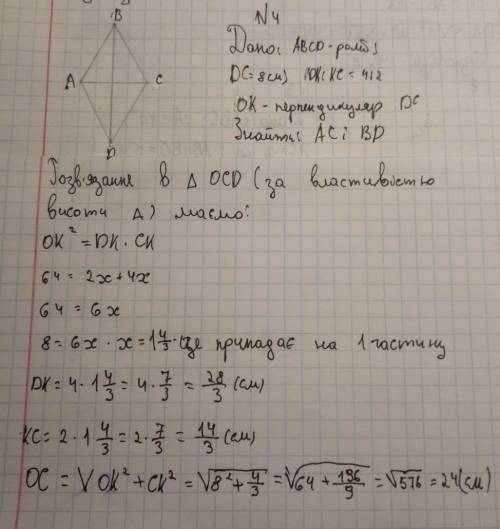 N4
B
Дано: ABCD - ромб;
A
C
DC = 8см; DK:KC = 4:2
OK - перпендикуляр DC
Знайти: AC і BD
D
Розв'язання в Δ OCD (за властивістю
висоти Δ) маємо:
OK² = DK · CK
64 = 2x + 4x
64 = 6x
8 = 6x · x = 1 4/3 - це припадає на 1 частину
DK = 4 · 1 4/3 = 4 · 7/3 = 28/3 (см)
KC = 2 · 1 4/3 = 2 · 7/3 = 14/3 (см)
OC = √OK² + CK² = √8² + 4/3 = √64 + 196/9 = √576 = 24 (см)